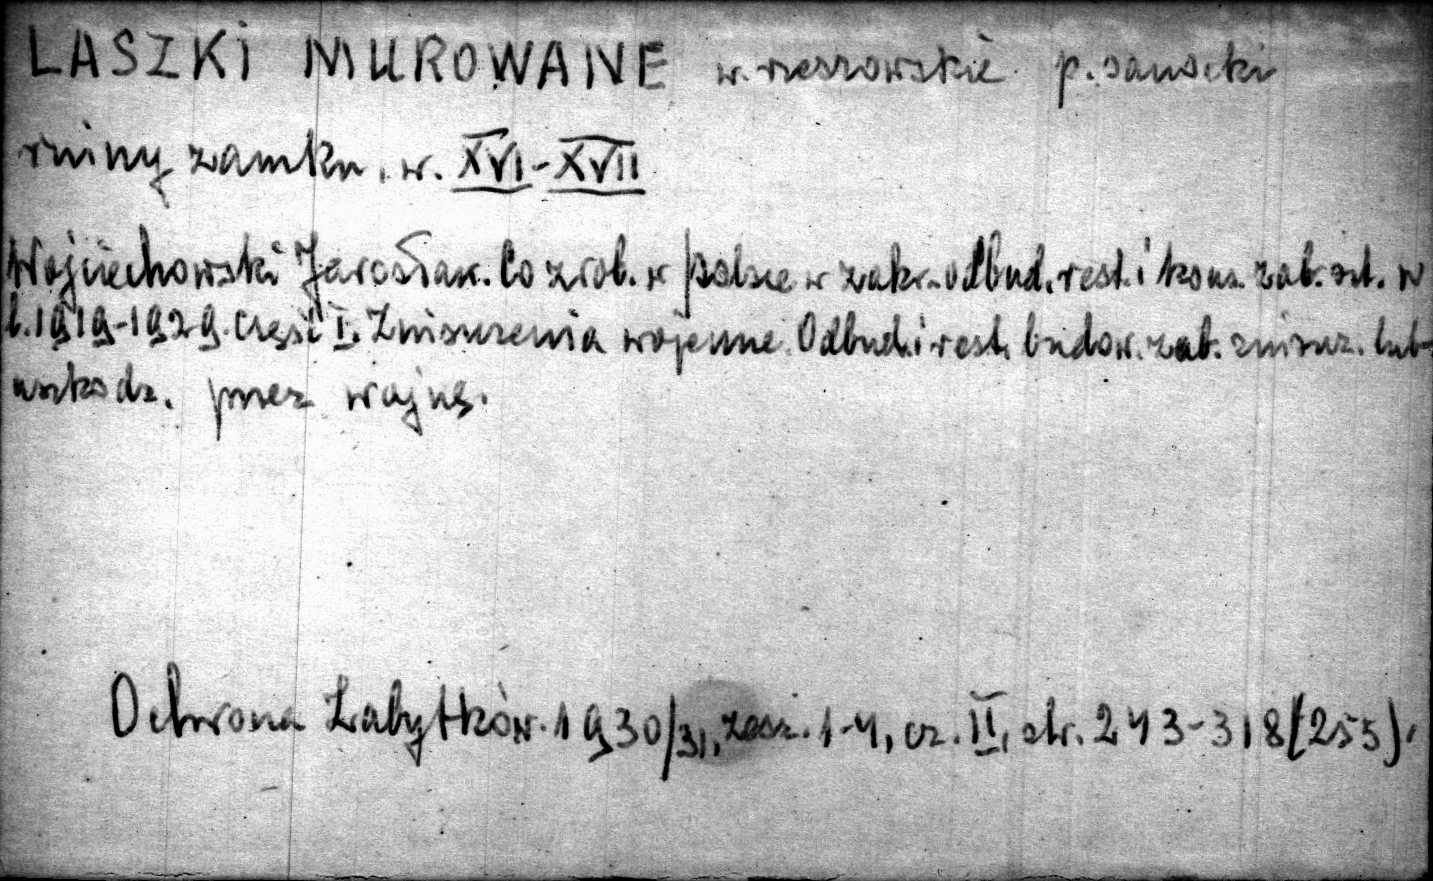 LASZKI MUROWANE w. rzeszowskie p. sanocki
ruiny zamku, w. XVI-XVII
Wojciechowski Jarosław. Co zrob. w Polsce w zakr. odbud. rest. i kons. zab. szt. w
l. 1919-1929. Część I. Zniszczenia wojenne. Odbud. i rest. budow. zab. zniszcz. lub
uszkodz. przez wojnę.
Ochrona Zabytków. 1930/31, zesz. 1-4, cz. II, str. 243-318 (255).